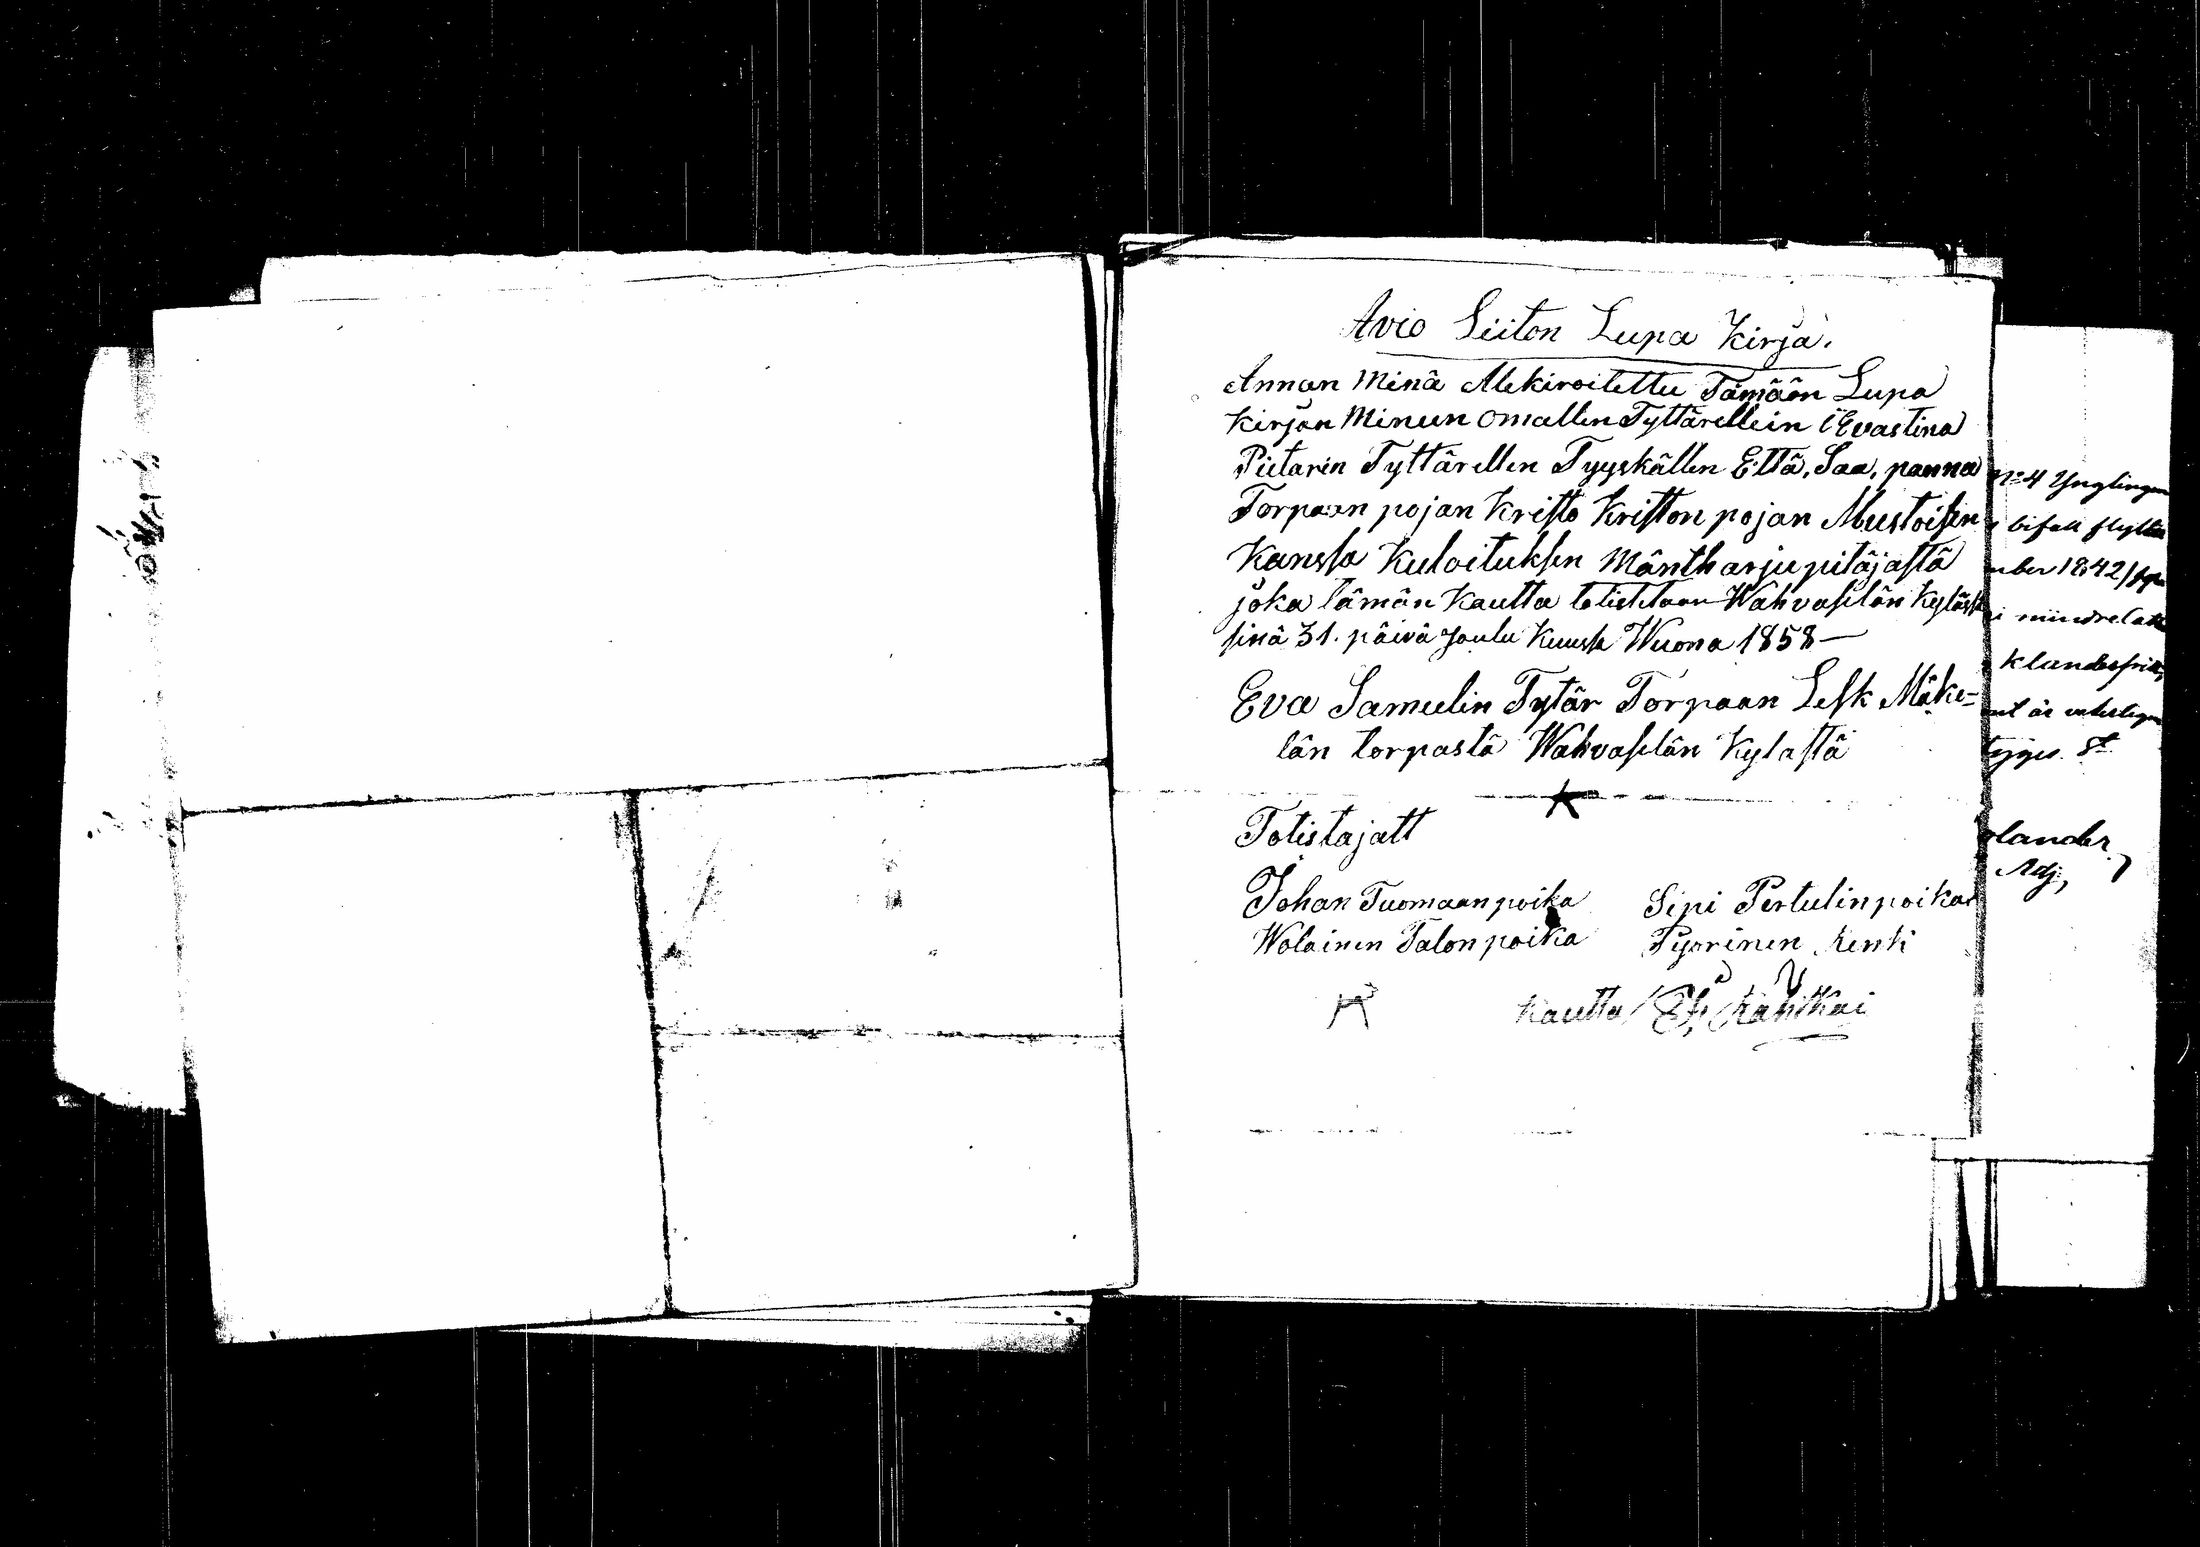 Avio Liiton Lupa Kirja.
Annan Minä Alekiroitettu Tämään Lupa
Kirjan Minun omallen Tyttärellein Evastina
Pietarin Tyttärellen Tyyskällen Että, Saa, panna
Torpaan pojan Kristo Kriston pojan Mustoisen
Kanssa Kuloituksen Mäntharju pitäjästä
joka tämän Kautta totistetaan Wahvaselän Kylässä
sinä 31. päivä Joulu Kuussa Wuona 1858—
Eva Samulin Tytär Torpaan Lesk Mäke=
län torpasta Wahvaselän Kylastä
Totistajatt
Johan Tuomaanpoika Sipi Pertulinpoika
Wolainen Talonpoika Pyorinen Renki
Kautta
No 4 Ynglingen
bifall flytta
mber 1842
i mindre
klander
ent är
tyges. St
lander
Adj,